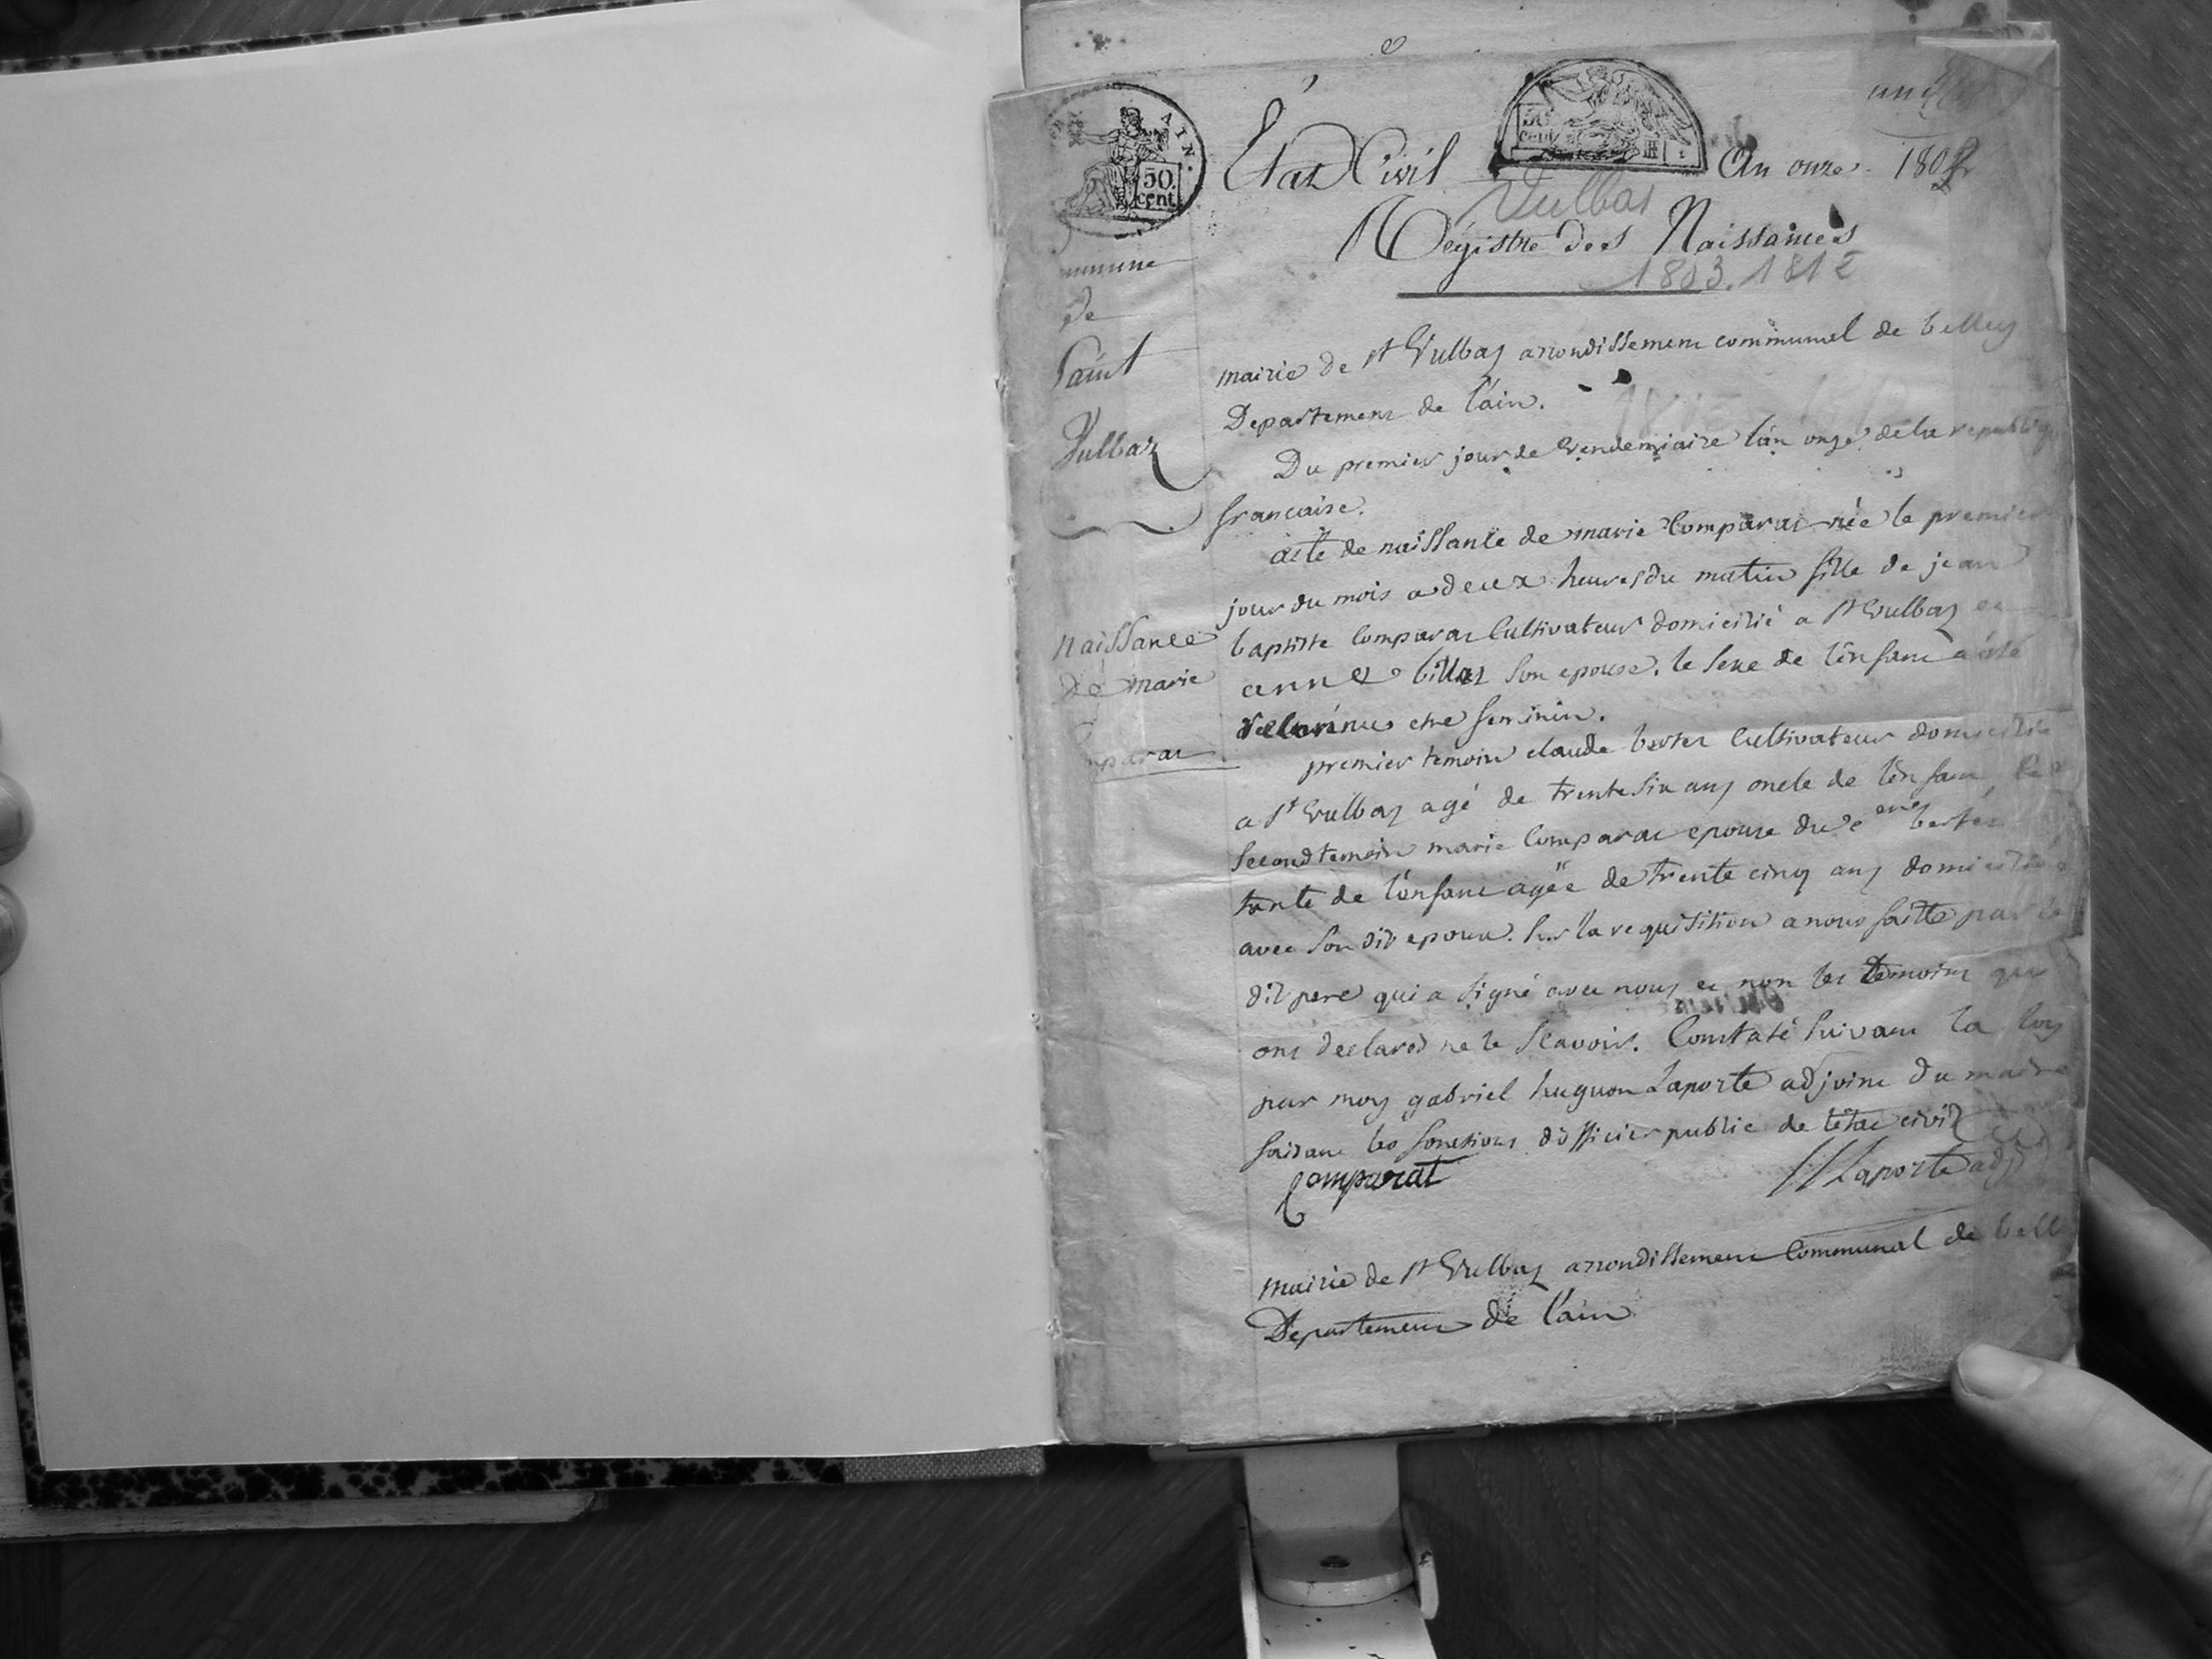 AIN.
50.
cent
50
cent
État Civil
An onze. 1802
Vulbas
Régistre des Naissances
1803. 1812
mmune
de
Saint
Vulbaz
mairie de st Vulbaz arrondissement communal de belley
Departement de l'ain.
Du premier jour de vendemiaire l'an onze de la republique
francaise.
acte de naissance de marie Comparat née le premier
jour du mois a deux heures du matin fille de jean
baptiste Comparat Cultivateur domicilié a st Vulbaz et
anne billaz son epouse. le sexe de l'enfant a été
être feminin.
Naissance
de marie
mparat
premier temoin claude berter Cultivateur domicilié
a st Vulbaz agé de trente six ans oncle de l'enfant
second temoin marie Comparat epouse du berter
tante de l'enfant agée de trente cinq ans domiciliée
avec son dit epoux. sur la requisition a nous faitte par le
dit pere qui a signé avec nous et non les temoins qui
ont declarés ne le scavoir. Constaté suivant la loy
par moy gabriel huguon Laporte adjoint du maire
faisant les fonctions d'officier public de l'état civil
Comparat
Laporte adj
mairie de st Vulbaz arrondissement Communal de bell
Departement de l'ain